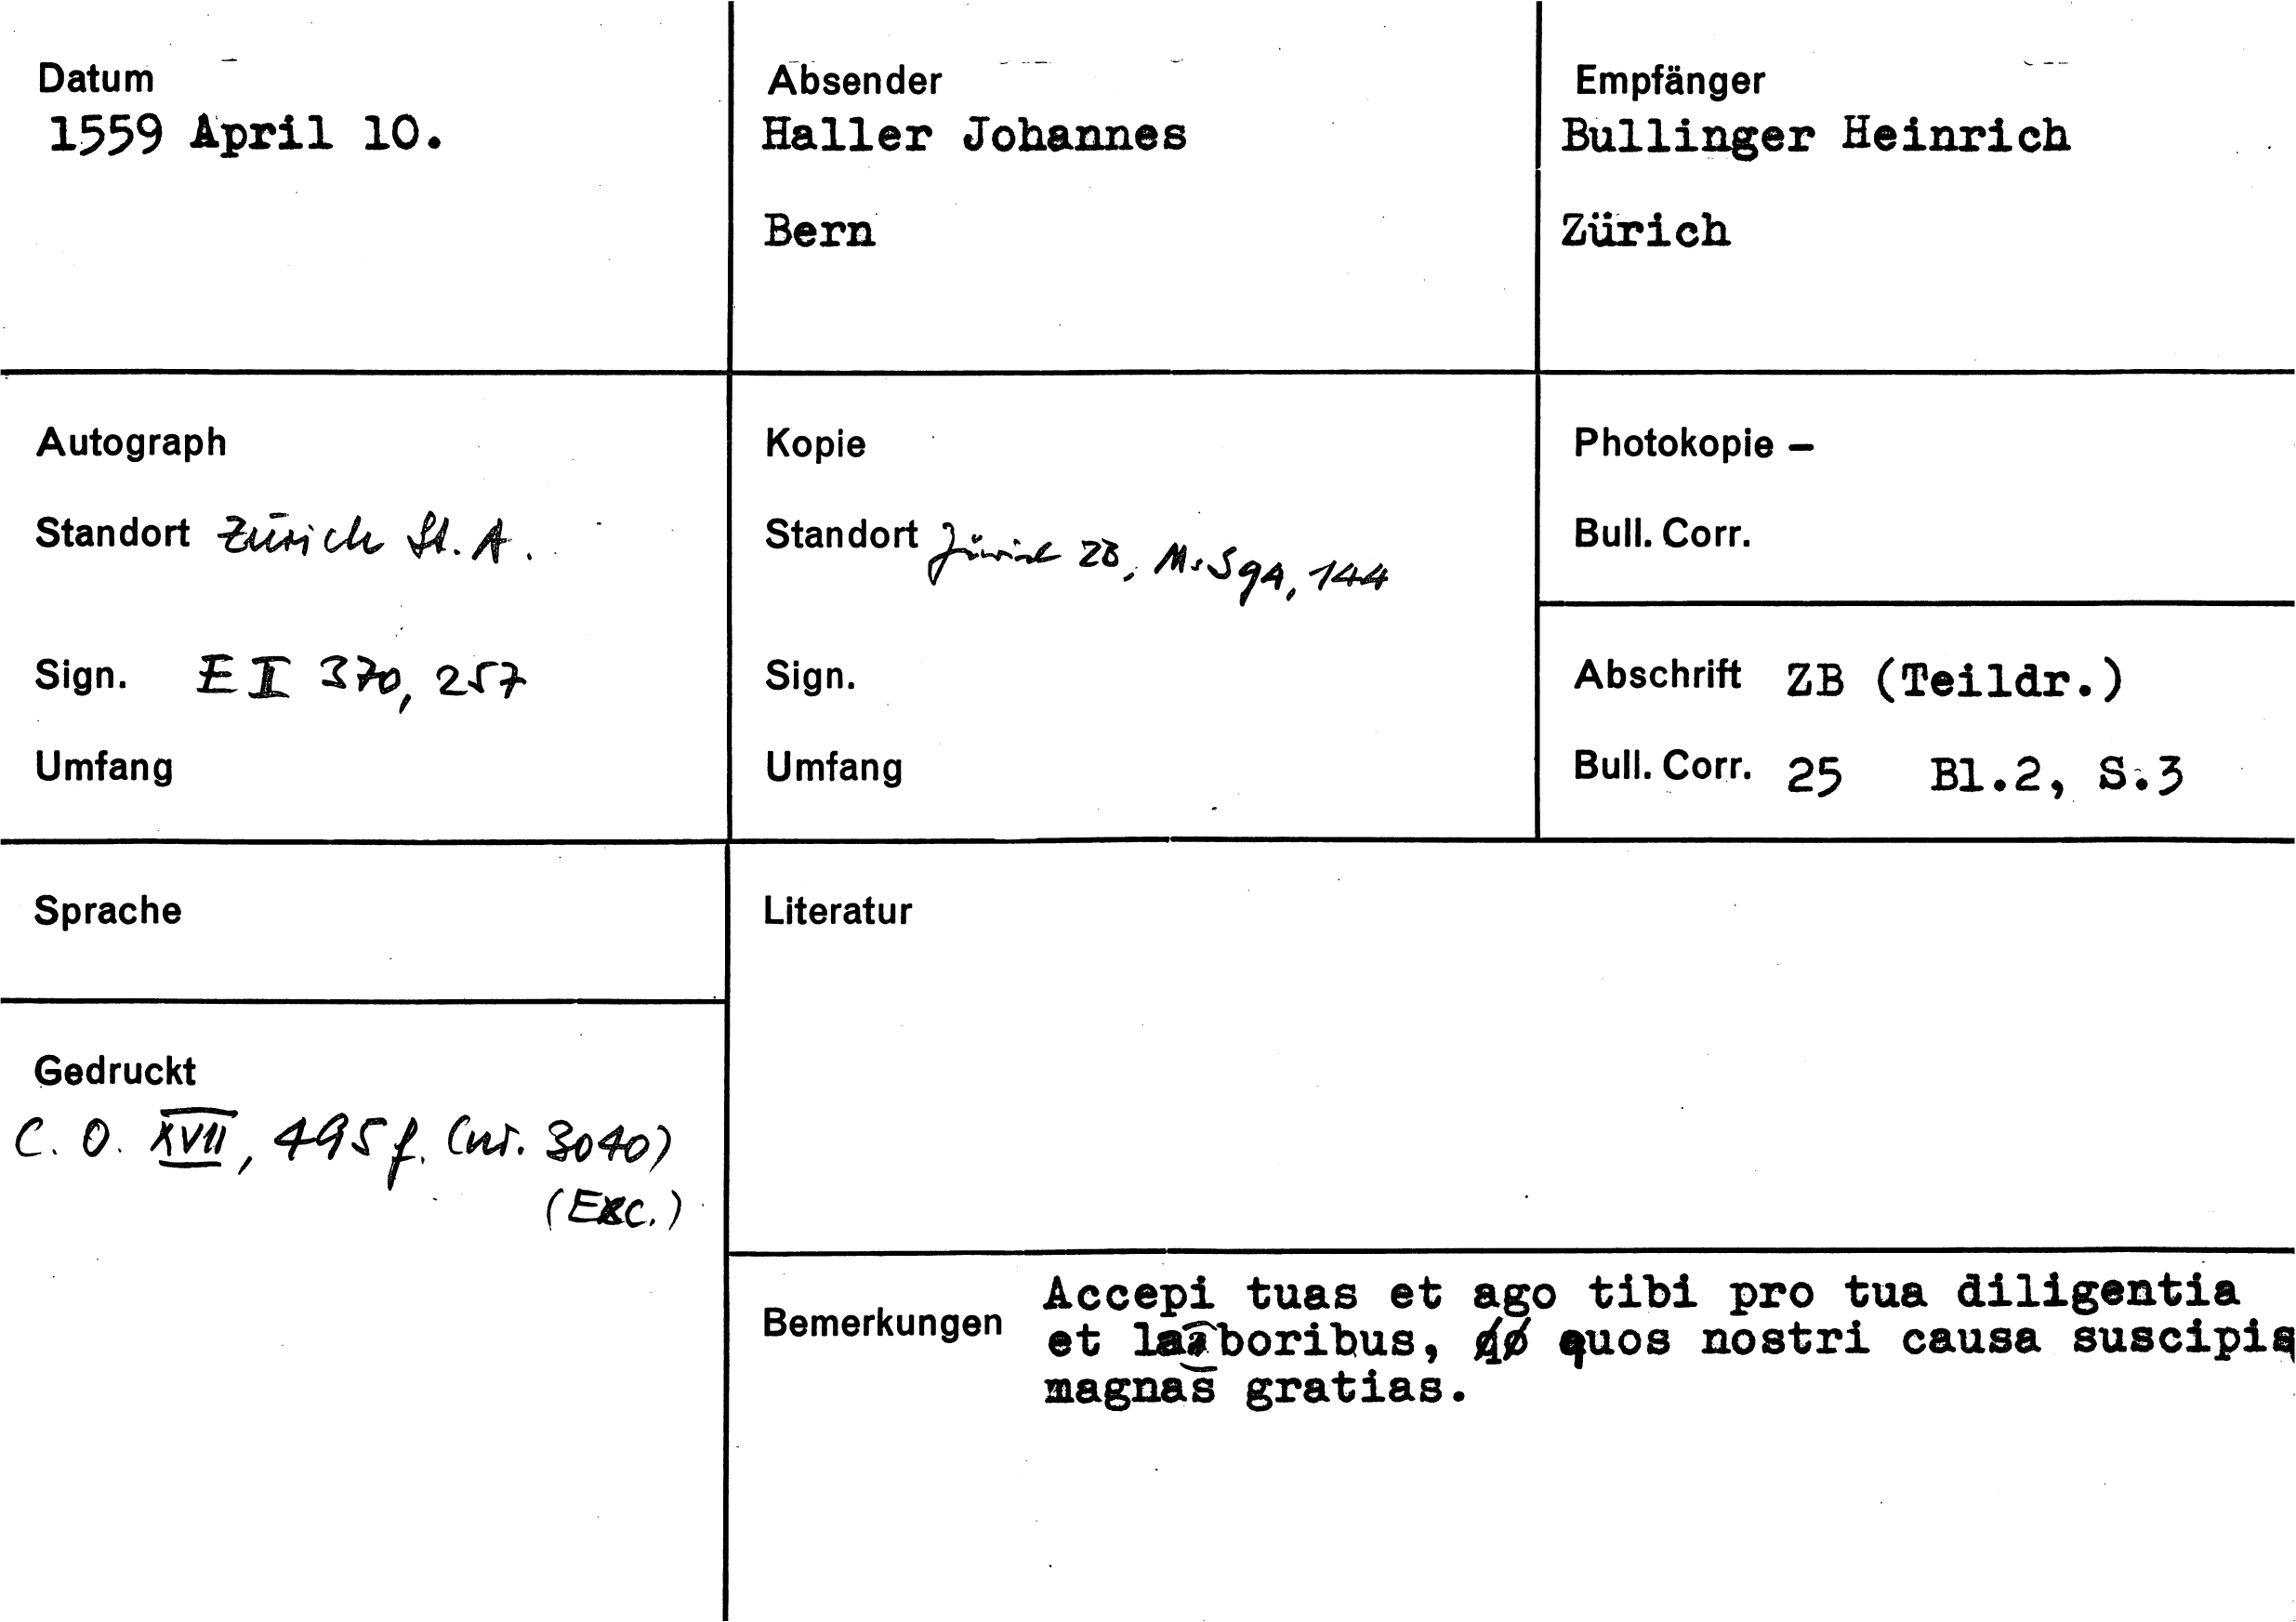 Datum
1559 April 10.
Absender
Haller Johannes
Bern
Empfänger
Bullinger Heinrich
Zürich
Autograph
Standort Zürich St. A.
Sign. E II 370, 257
Umfang
Kopie
Standort Zürich ZB, Ms S 94, 144
Sign.
Umfang
Photokopie –
Bull. Corr.
Abschrift ZB (Teildr.)
Bull. Corr. 25 Bl.2, S.3
Sprache
Gedruckt
C. O. XVII, 495 f. (nr. 3040)
(Exc.)
Literatur
Bemerkungen
Accepi tuas et ago tibi pro tua diligentia
et laboribus, quos nostri causa suscipis
magnas gratias.